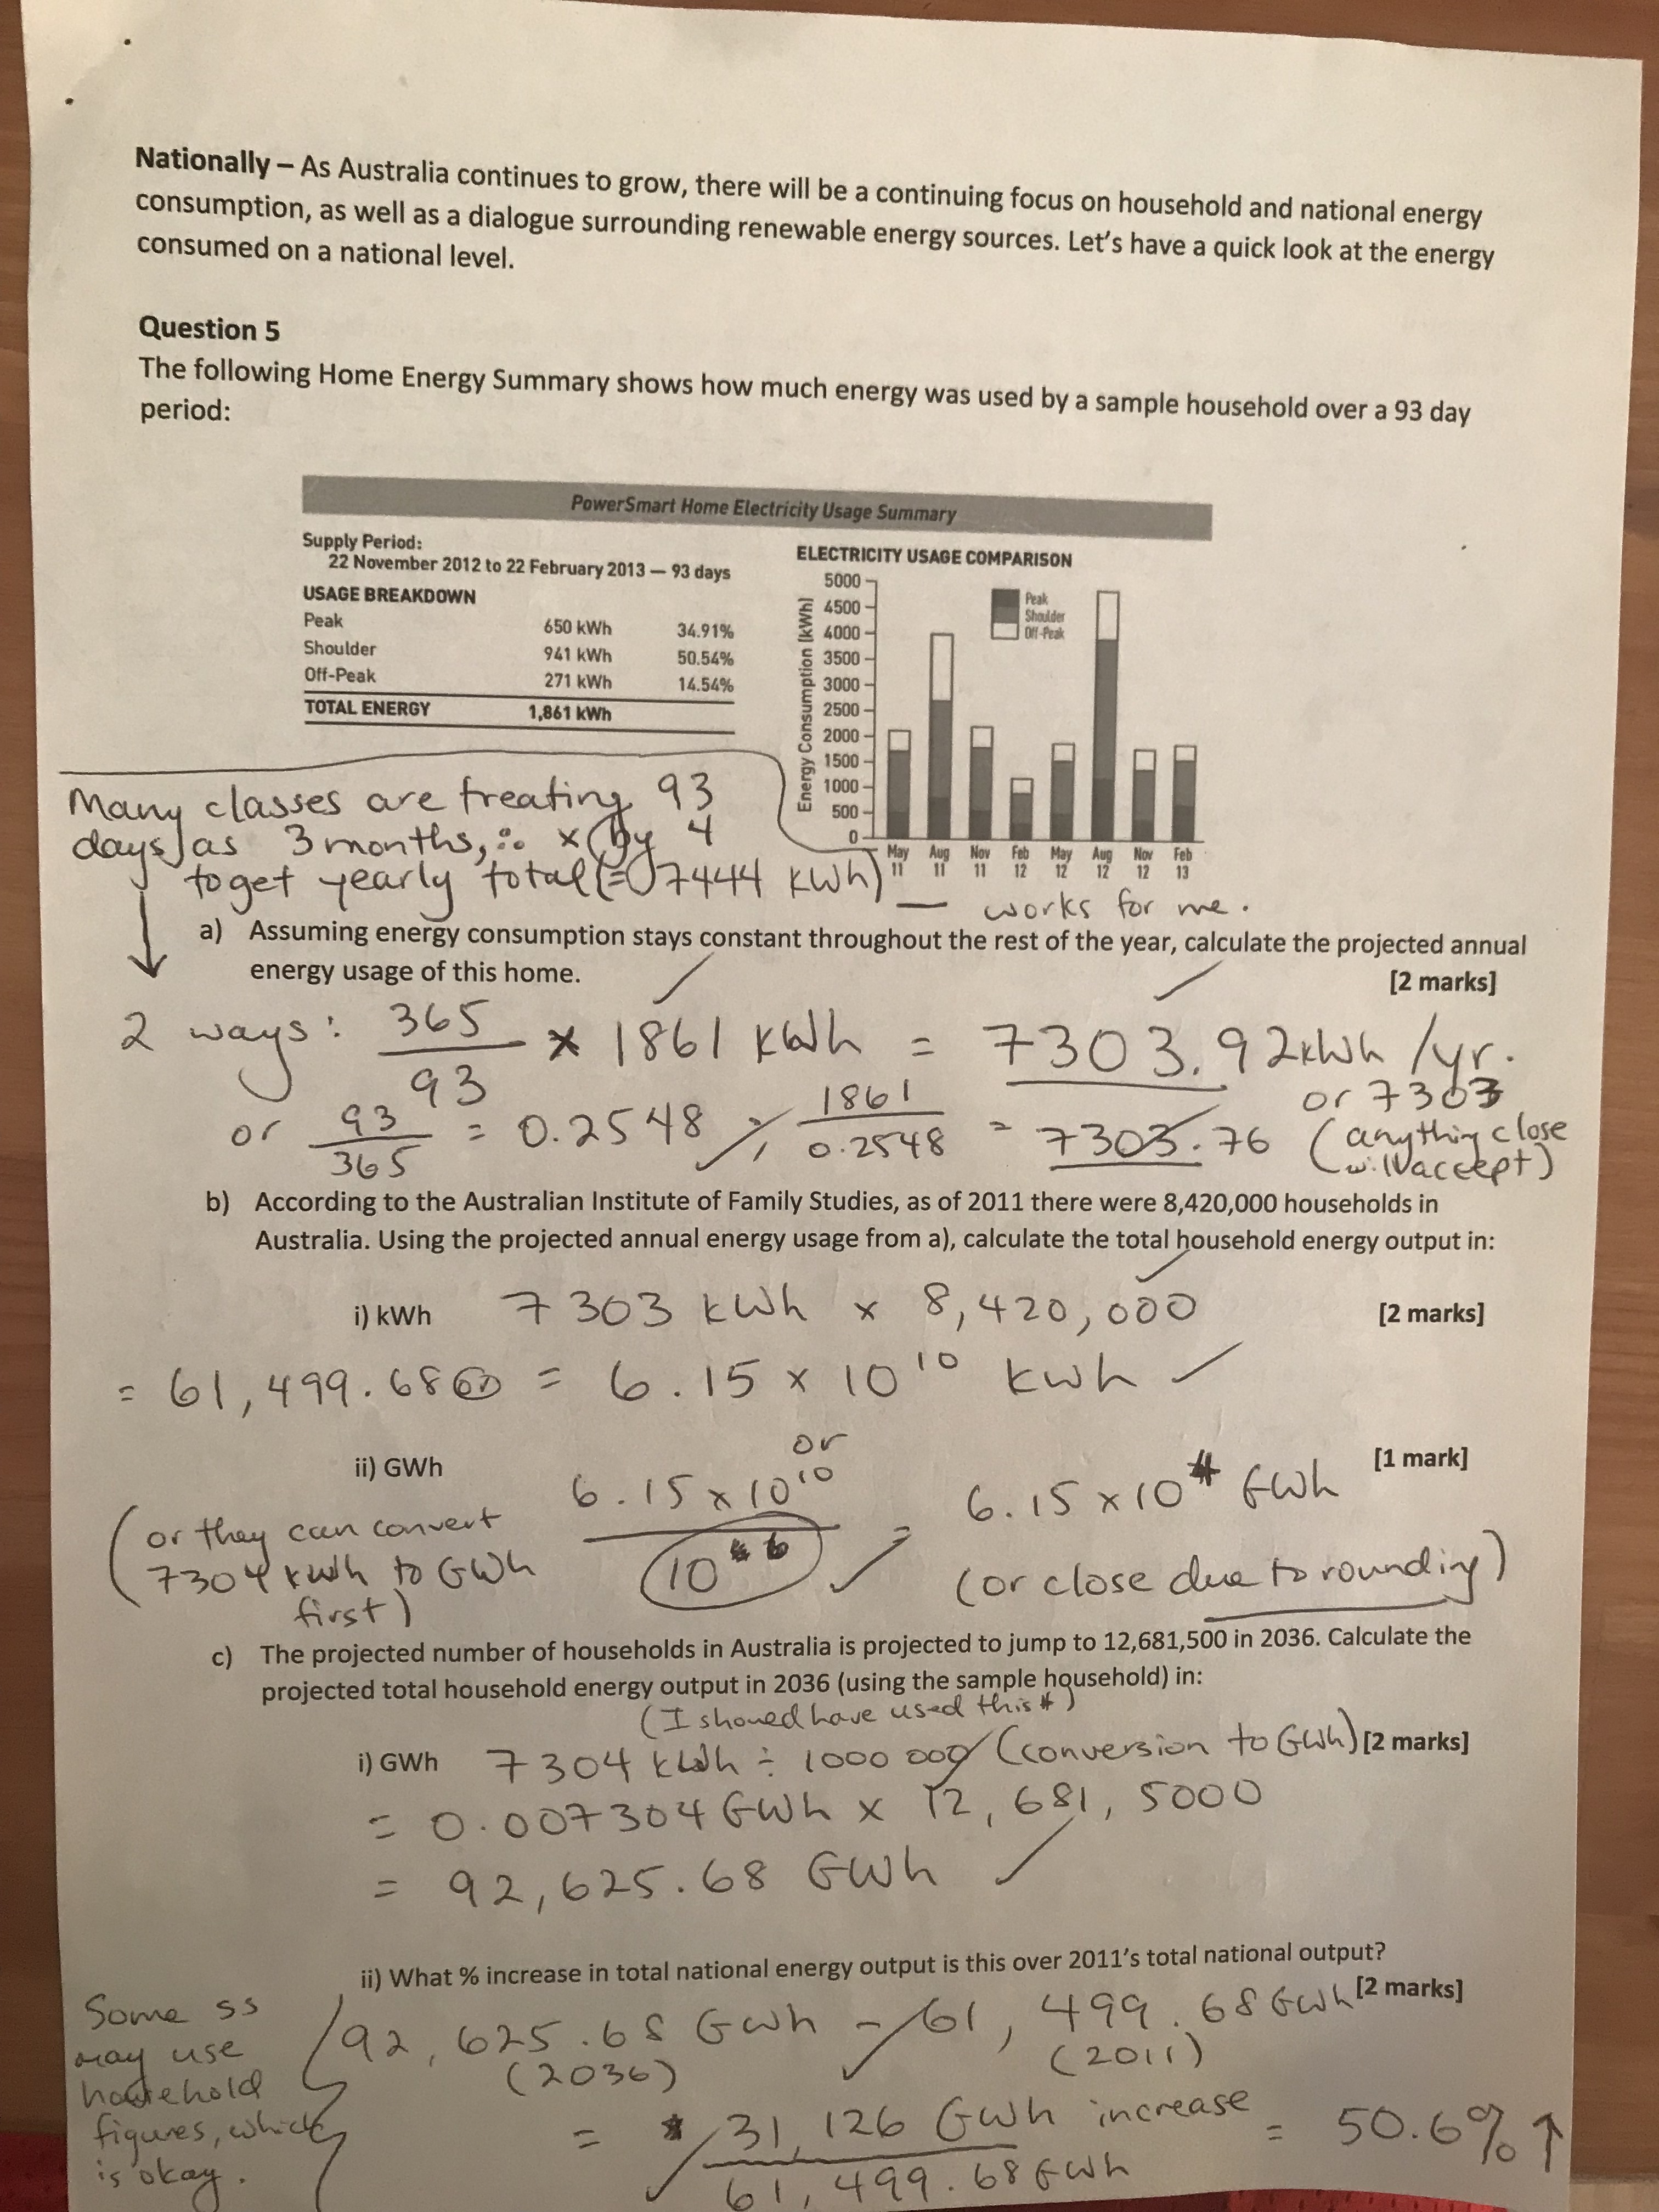 Nationally – As Australia continues to grow, there will be a continuing focus on household and national energy
consumption, as well as a dialogue surrounding renewable energy sources. Let's have a quick look at the energy
consumed on a national level.
Question 5
The following Home Energy Summary shows how much energy was used by a sample household over a 93 day
period:
PowerSmart Home Electricity Usage Summary
Supply Period:
22 November 2012 to 22 February 2013 — 93 days
USAGE BREAKDOWN
Peak 650 kWh 34.91%
Shoulder 941 kWh 50.54%
Off-Peak 271 kWh 14.54%
TOTAL ENERGY 1,861 kWh
ELECTRICITY USAGE COMPARISON
Energy Consumption (kWh)
5000
4500
4000
3500
3000
2500
2000
1500
1000
500
0
Peak
Shoulder
Off-Peak
May Aug Nov Feb May Aug Nov Feb
11 11 11 12 12 12 12 13
Many classes are treating 93
days as 3 months, ∴ x by 4
to get yearly total (= 7444 kWh) — works for me.
a) Assuming energy consumption stays constant throughout the rest of the year, calculate the projected annual
energy usage of this home. [2 marks]
2 ways: 365/93 x 1861 kWh = 7303.92 kWh/yr.
or 7303
or 93/365 = 0.2548 ; 1861/0.2548 = 7303.76 (anything close
will accept)
b) According to the Australian Institute of Family Studies, as of 2011 there were 8,420,000 households in
Australia. Using the projected annual energy usage from a), calculate the total household energy output in:
i) kWh 7303 kWh x 8,420,000 [2 marks]
= 61,499.68 = 6.15 x 10^10 kWh
or
ii) GWh 6.15 x 10^10 / 10^6 = 6.15 x 10^4 GWh [1 mark]
(or they can convert
7304 kWh to GWh
first)
(or close due to rounding)
c) The projected number of households in Australia is projected to jump to 12,681,500 in 2036. Calculate the
projected total household energy output in 2036 (using the sample household) in:
(I should have used this #)
i) GWh 7304 kWh ÷ 1000 000 (conversion to GWh) [2 marks]
= 0.007304 GWh x 12,681,5000
= 92,625.68 GWh
ii) What % increase in total national energy output is this over 2011's total national output?
[2 marks]
92,625.68 GWh - 61,499.68 GWh
(2036) (2011)
= 31,126 GWh increase / 61,499.68 GWh = 50.6% ↑
Some ss
may use
household
figures, which
is okay.